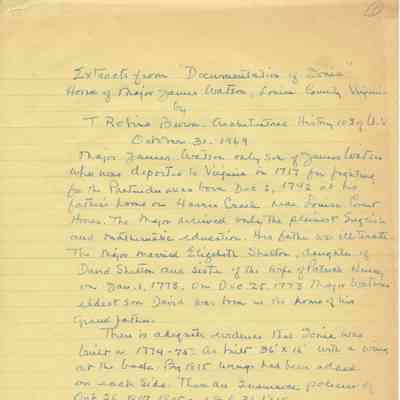 Extracts from "Documentation of Ionia"
Home of Major James Watson, Louisa County, Virginia
by
T. Robins Brown - Architectural History 103 g U.V.
October 31, 1969
Major James Watson only son of James Watson
who was deported to Virginia in 1717 for fighting
for the Pretender was born Dec 2, 1742 at his
father's home on Harris Creek near Louisa Court
House. The Major received only the plainest English
and mathematic education. His father was illiterate
The Major married Elizabeth Shelton, daughter of
David Shelton and sister of the wife of Patrick Henry,
on Jan. 1, 1773. On Dec 25, 1773 Major Watson's
eldest son David was born in the home of his
Grandfather.
There is adequate evidence that Ionia was
built in 1774-75. As built 36' x 16' with a wing
at the back. By 1815 wings had been added
on each side. There are Insurance policies of
Oct 26, 1807, 1815